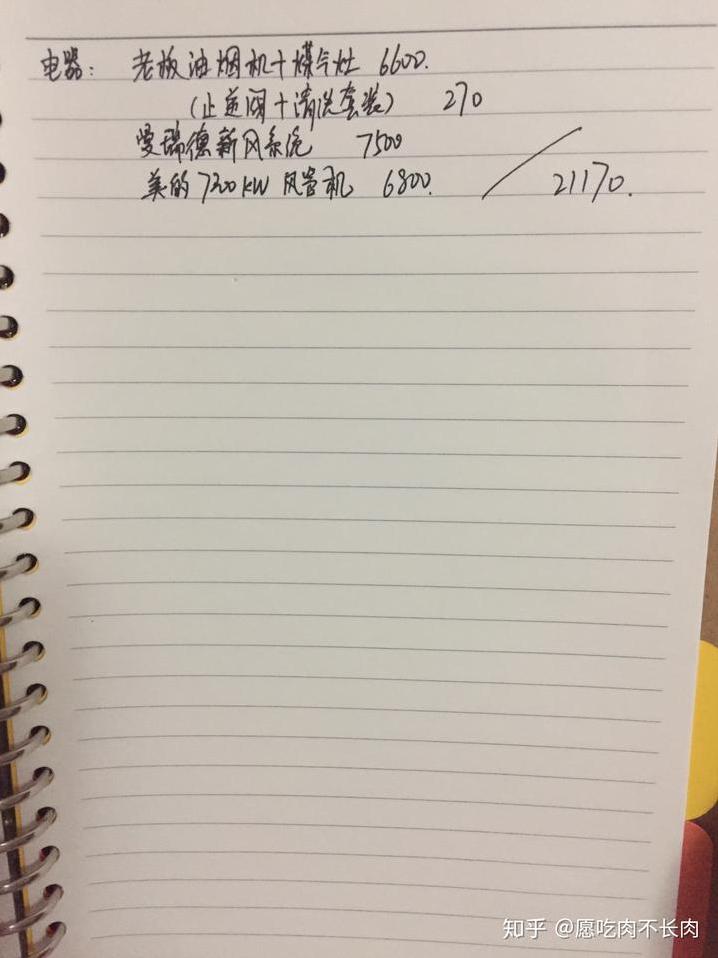 电器: 老板油烟机+煤气灶 6600.
(止逆阀+清洗套装) 270
曼瑞德新风系统 7500
美的7200KW 风管机 6800. / 21170.
知乎 @愿吃肉不长肉